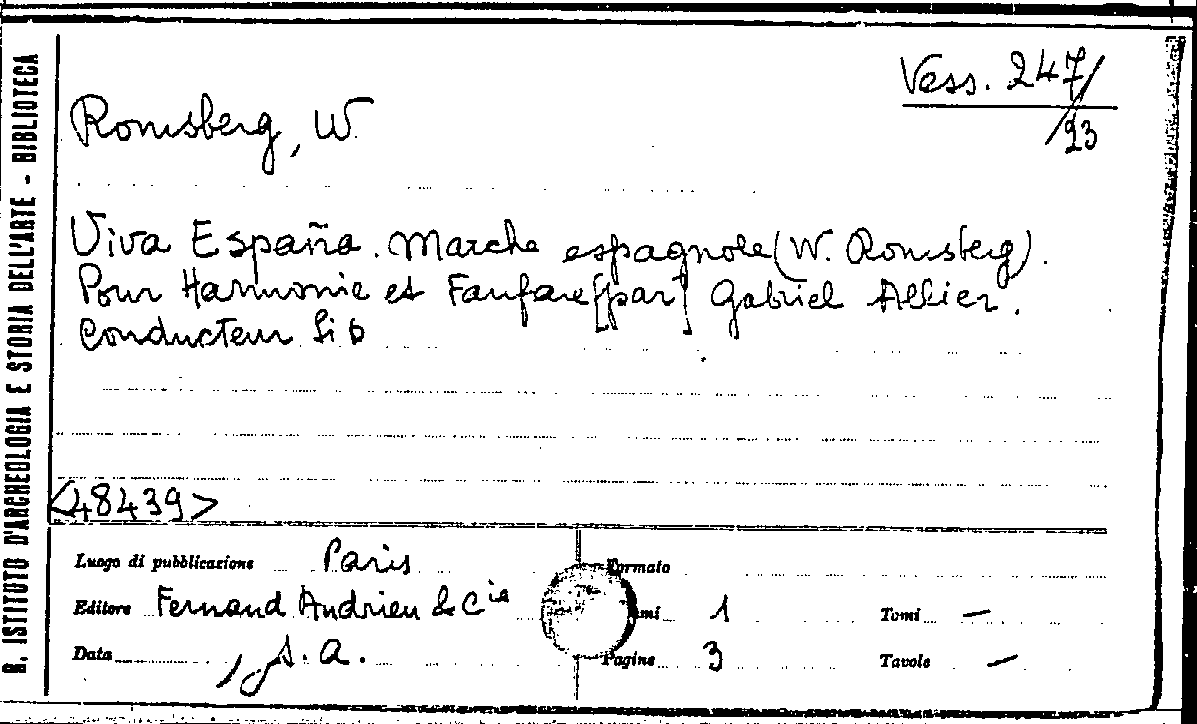 R. ISTITUTO D'ARCHEOLOGIA E STORIA DELL'ARTE - BIBLIOTECA
Vess. 247/
/93
Romsberg, W.
Viva España. Marche espagnole (W. Romsberg).
Pour Harmonie et Fanfare [par] Gabriel Allier.
Conducteur Si b
<48439>
Luogo di pubblicazione Paris Formato
Editore Fernand Andrieu & Cie 1 Tomi —
Data s.a. Pagine 3 Tavole —